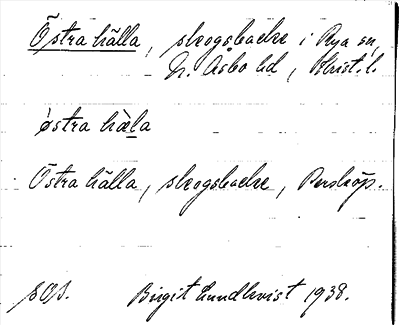 Östra hälla, skogsbacke i Rya sn,
N. Åsbo hd, Krist. l.
östra hàla
Östra hälla, skogsbacke, Perstorp.
SOI. Birgit Lundkvist 1938.